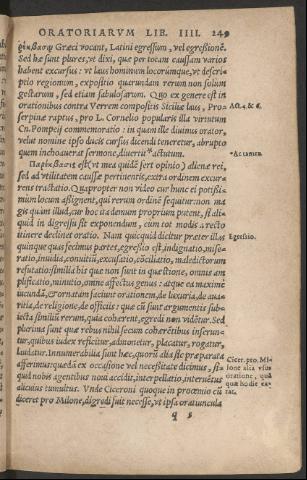 ORATORIARVM LIB. IIII. 249
Græci vocant, Latini egressum, vel egressionē.
Sed hæ sunt plures, vt dixi, quæ per totam caussam varios
habent excursus: vt laus hominum locorumque, vt descri-
ptio regionum, expositio quarundam rerum non solum
gestarum, sed etiam fabulosarum. Quo ex genere est in
orationibus contra Verrem compositis Siciliæ laus, Pro-
serpinæ raptus, pro L. Cornelio popularis illa virtutum
Cn. Pompeij commemoratio: in quam ille diuinus orator,
velut nomine ipso ducis cursus dicendi teneretur, abrupto
quem inchoauerat sermone, diuertit *actutum.
Παρέκβασις est (vt mea quidē fert opinio) alienæ rei,
sed ad vtilitatem caussæ pertinentis, extra ordinem excur-
rens tractatio. Quapropter non video cur hunc ei potissi-
mùm locum assignent, qui rerum ordinē sequitur: non ma
gis quàm illud, cur hoc ita demum proprium putent, si ali-
quid in digressu sit exponendum, cum tot modis à recto
itinere declinet oratio. Nam quicquid dicitur præter illas
quinque quas fecimus partes, egressio est, indignatio, mise-
ratio, inuidia, conuitiū, excusatio, cōciliatio, maledictorum
refutatio: similia his quæ non sunt in quæstione, omnis am
plificatio, minutio, omne affectus genus: atque ea maximè
iucundā, & ornatam faciunt orationem, de luxuria, de aua-
ritia, de religione, de officijs: quæ cū sunt argumentis sub-
iecta similiū rerum, quia cohærent, egredi non vidētur. Sed
plurima sunt quæ rebus nihil secum cohærētibus inserun-
tur, quibus iudex reficitur, admonetur, placatur, rogatur,
laudatur. Innumerabilia sunt hæc, quorū alia sic præparata
afferimus: quædā ex occasione vel necessitate dicimus, si-
quid nobis agentibus noui accidit, interpellatio, interuētus
alicuius tumultus. Vnde Ciceroni quoque in proœmio cū
diceret pro Milone, digredi fuit necesse, vt ipsa oratiuncula
q 5
Act. 4. & 6.
*Ac tamen.
Egressio.
Cicer. pro. Mi-
lone alia vsus
oratione, quā
quæ hodie ex-
tat.